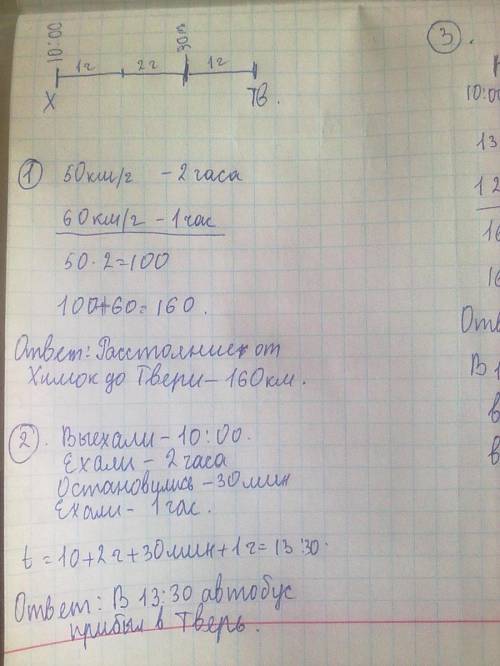 10:00
30м
1г 2г 1г
Х ТВ.
1 50км/г - 2 часа
60км/г - 1 час
50·2=100
100+60=160.
Ответ: Расстояние от
Химок до Твери - 160км.
2. Выехали - 10:00.
Ехали - 2 часа
Остановулись - 30 мин
Ехали - 1 час.
t = 10+2г+30мин+1г= 13:30.
Ответ: В 13:30 автобус
прибыл в Тверь.
3.
10:00
13
12
16
16
Отв
В 1
в
в